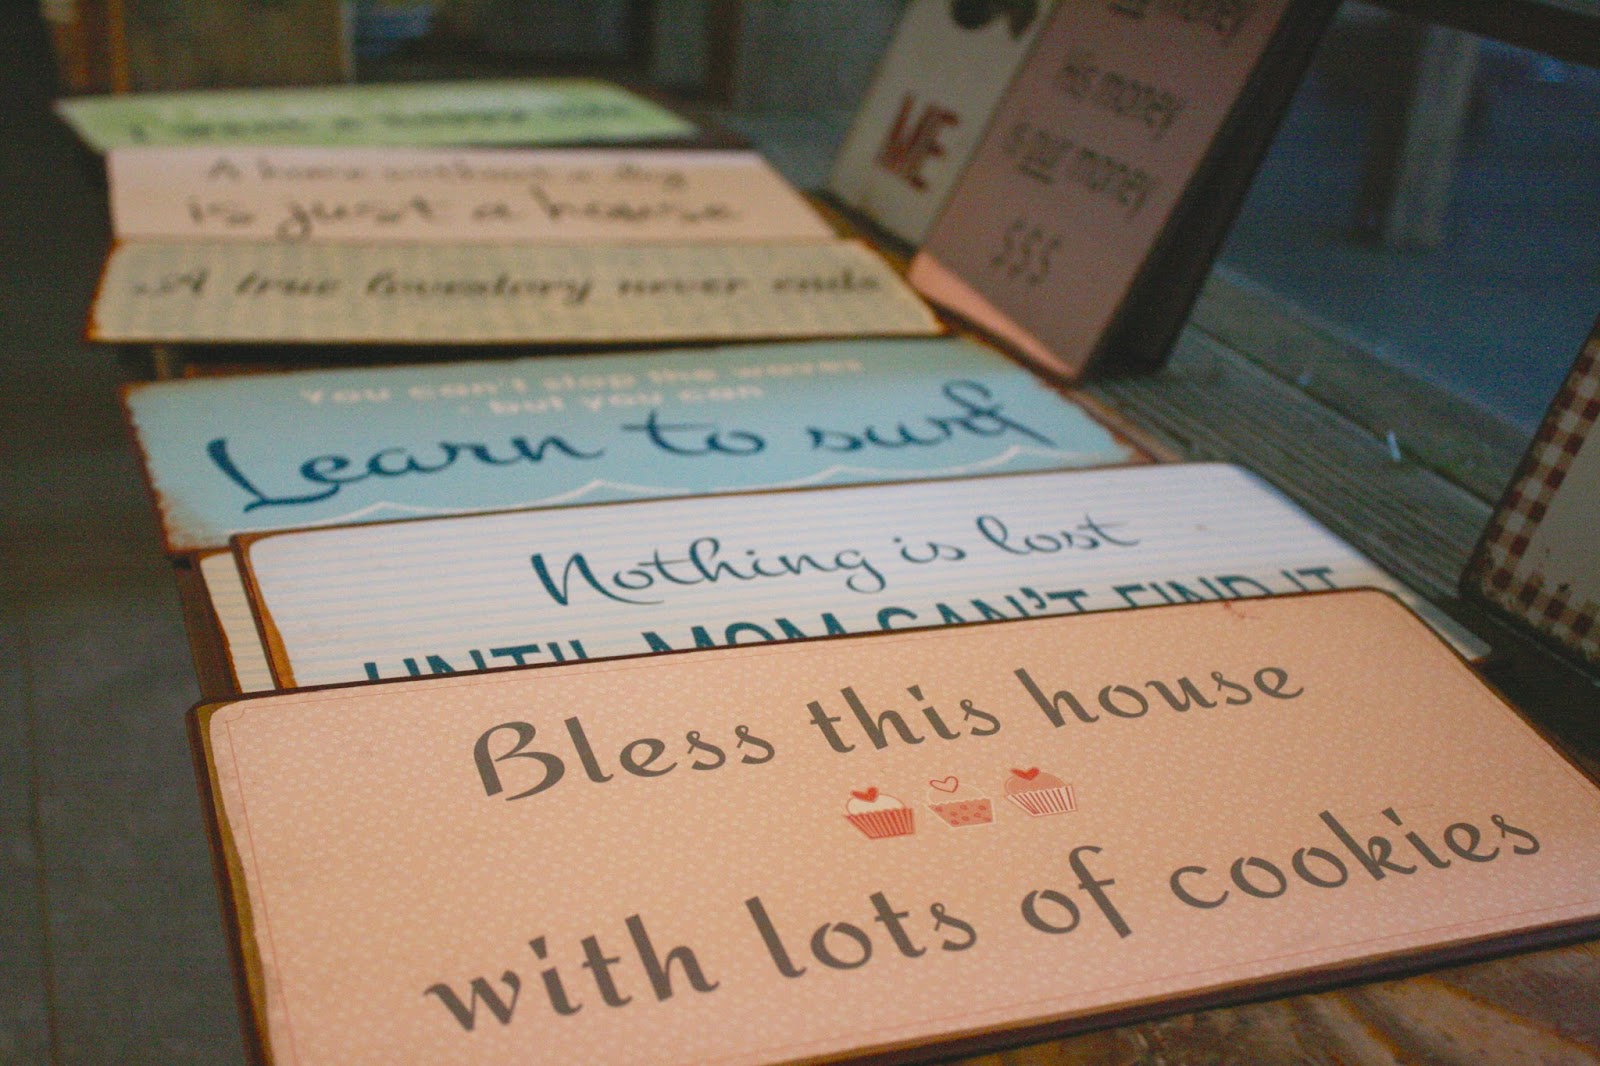 Bless this house
with lots of cookies
Nothing is lost
UNTIL MOM CAN'T FIND IT
You can't stop the waves
- but you can
Learn to surf
A true lovestory never ends
A home without a dog
is just a house
I want a happy
ME
money
His money
is our money
$$$